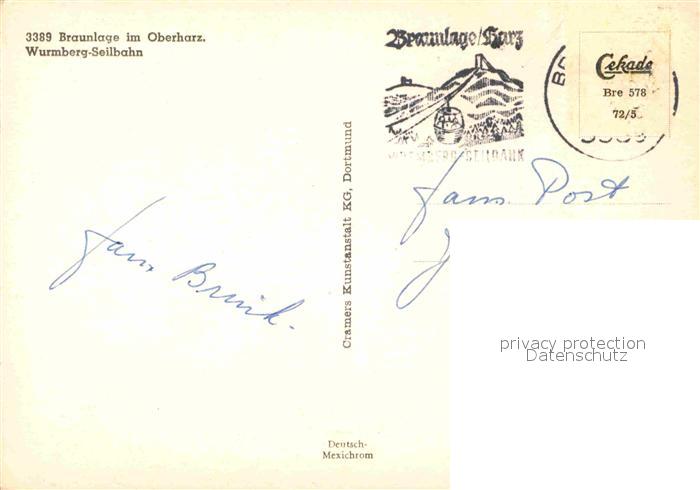 3389 Braunlage im Oberharz.
Wurmberg-Seilbahn
Braunlage/Harz
WURMBERG-SEILBAHN
Cekade
Bre 578
72/5
Cramers Kunstanstalt KG, Dortmund
Fam. Post
Fam. Brink.
privacy protection
Datenschutz
Deutsch-
Mexichrom